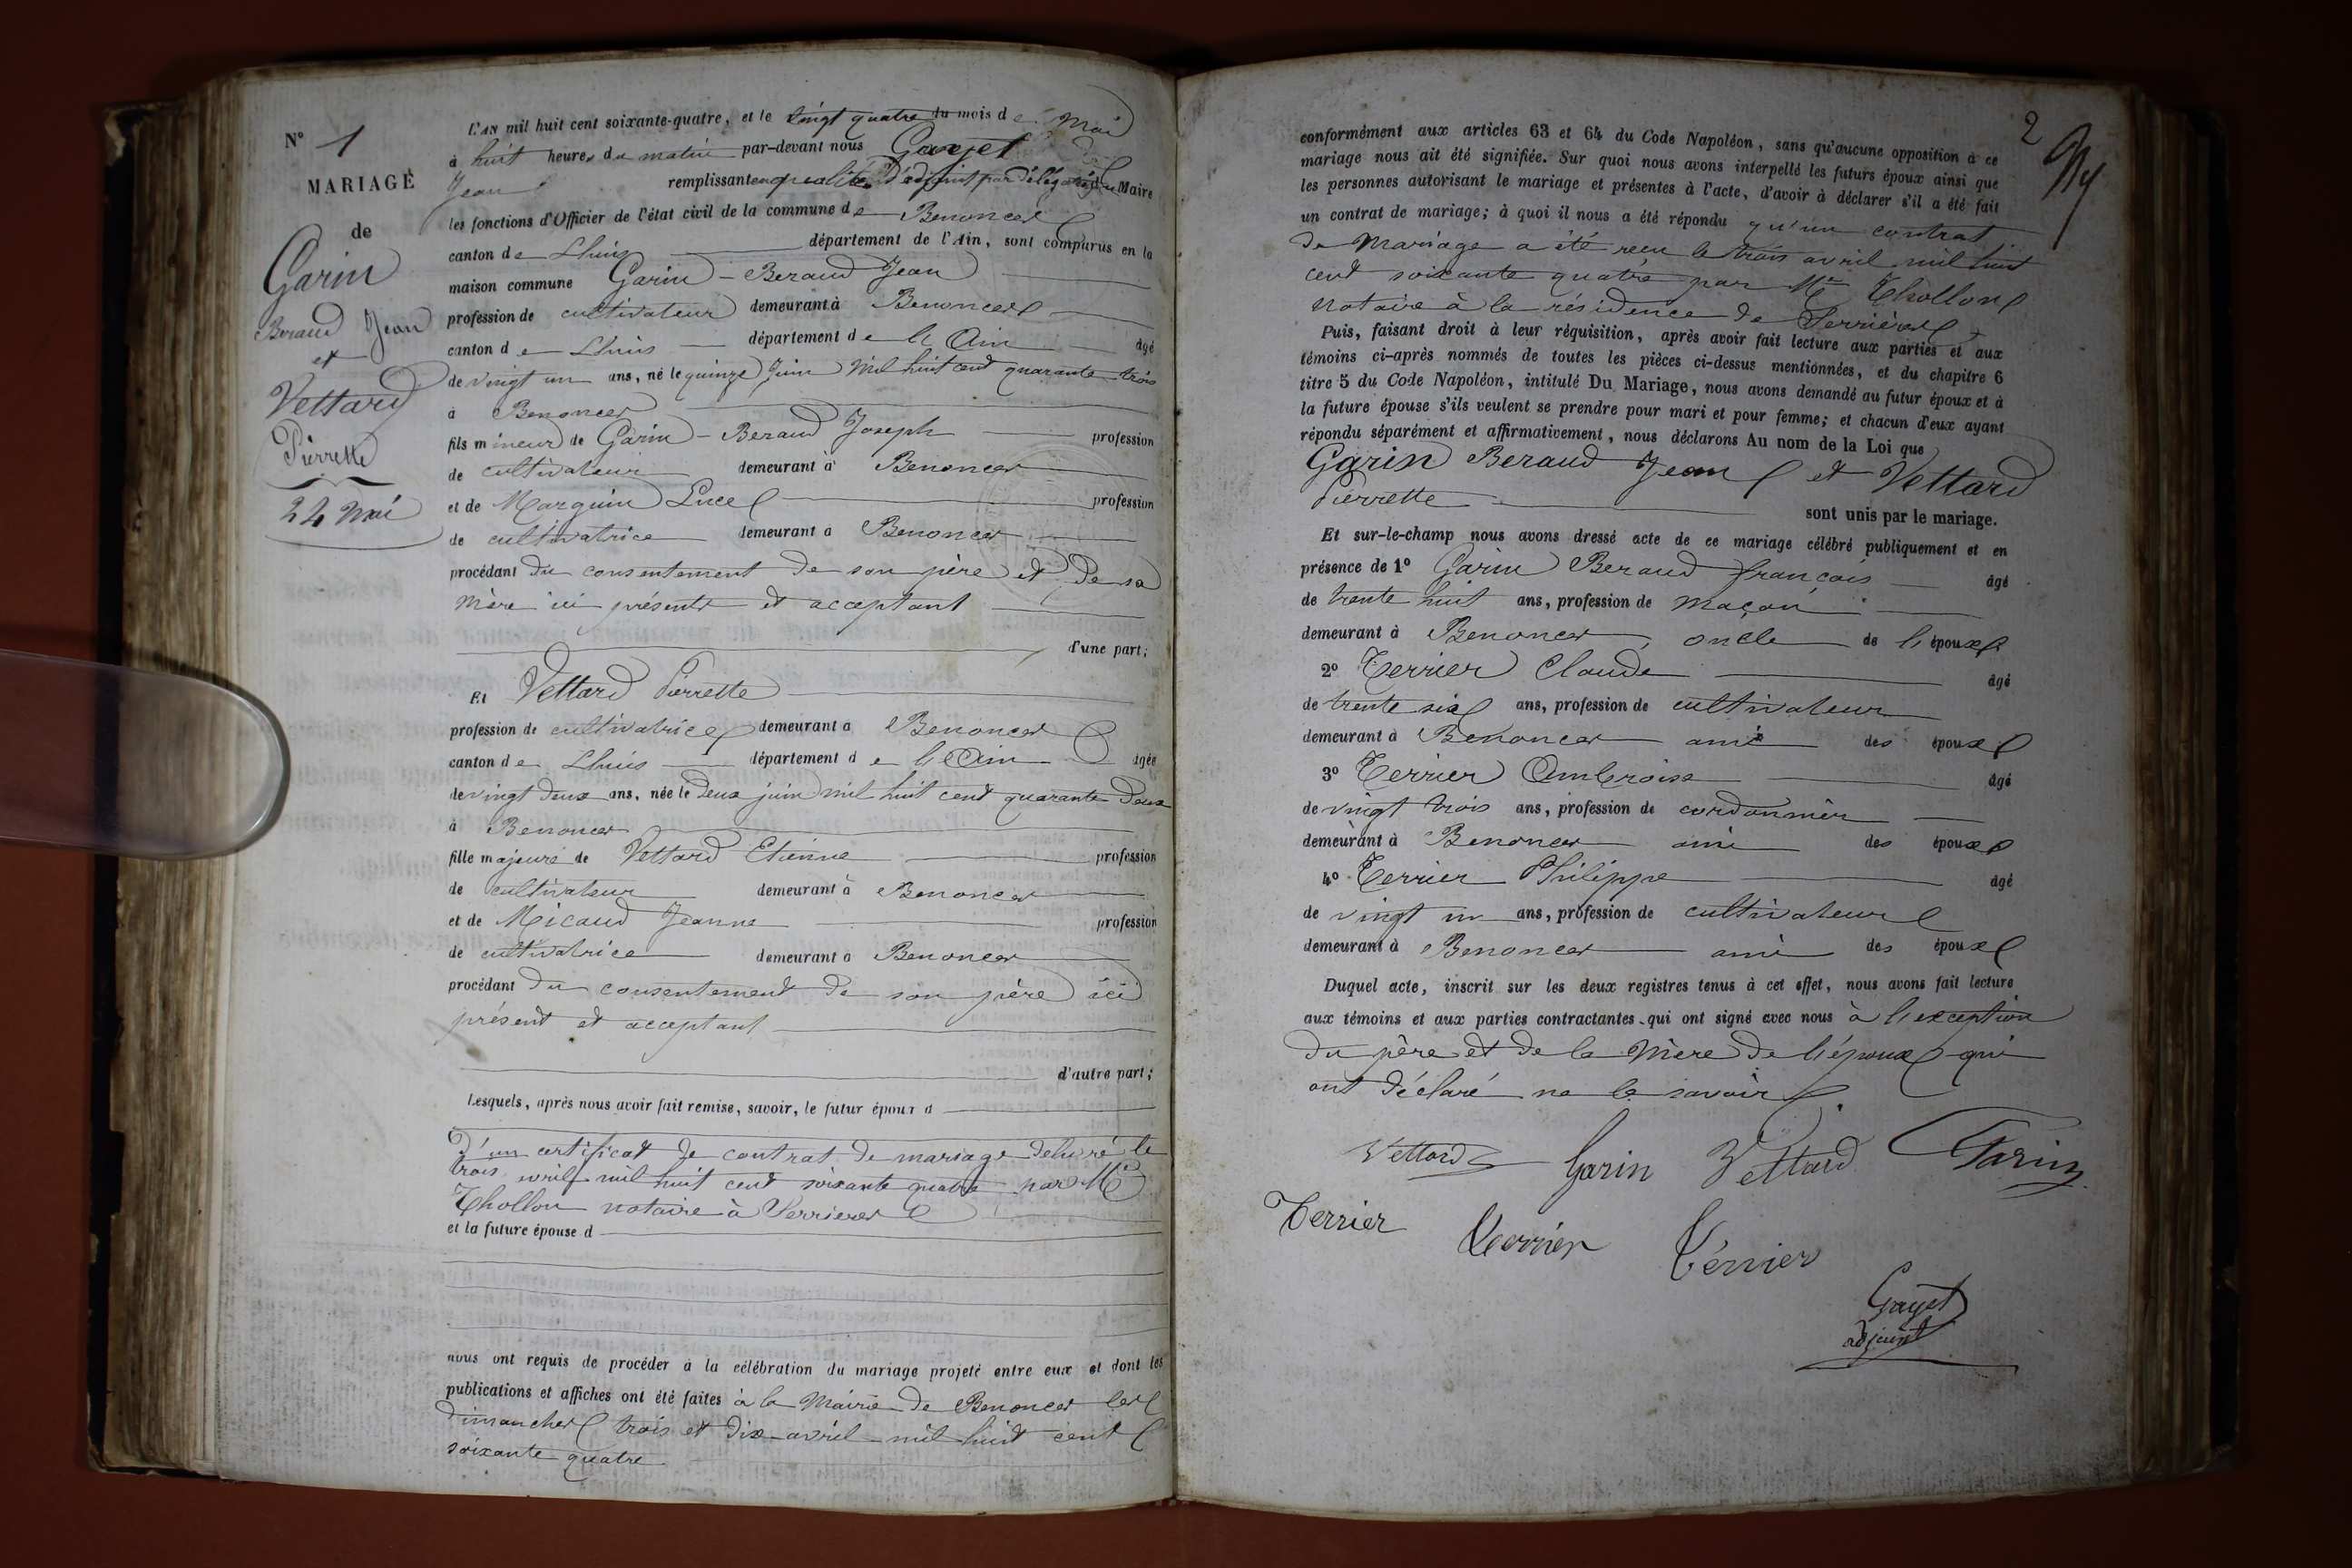 N° 1
MARIAGE
de
Garin
Beraud Jean
et
Vettard
Pierrette
24 Mai
L'AN mil huit cent soixante-quatre, et le vingt quatre du mois de Mai
à huit heures du matin par-devant nous Gayet
Jean remplissant en qualité d'adjoint par délégation du Maire
les fonctions d'Officier de l'état civil de la commune de Benonces
canton de Lhuis département de l'Ain, sont comparus en la
maison commune Garin - Beraud Jean
profession de cultivateur demeurant à Benonces
canton de Lhuis département de l'Ain âgé
de vingt un ans, né le quinze Juin mil huit cent quarante trois
à Benonces
fils mineur de Garin - Beraud Joseph profession
de cultivateur demeurant à Benonces
et de Marguin Luce profession
de cultivatrice demeurant à Benonces
procédant du consentement de son père et de sa
mère ici présents et acceptant
d'une part;
Et Vettard Pierrette
profession de cultivatrice demeurant à Benonces
canton de Lhuis département de l'Ain âgée
de vingt deux ans, née le deux juin mil huit cent quarante deux
à Benonces
fille majeure de Vettard Etienne profession
de cultivateur demeurant à Benonces
et de Micaud Jeanne profession
de cultivatrice demeurant à Benonces
procédant du consentement de son père ici
présent et acceptant
d'autre part;
Lesquels, après nous avoir fait remise, savoir, le futur époux d
d'un certificat de contrat de mariage délivré le
trois avril mil huit cent soixante quatre par Me
Thollon notaire à Serrières
et la future épouse d
nous ont requis de procéder à la célébration du mariage projeté entre eux et dont les
publications et affiches ont été faites à la Mairie de Benonces les
dimanches trois et dix avril mil huit cent
soixante quatre
2
conformément aux articles 63 et 64 du Code Napoléon, sans qu'aucune opposition à ce
mariage nous ait été signifiée. Sur quoi nous avons interpellé les futurs époux ainsi que
les personnes autorisant le mariage et présentes à l'acte, d'avoir à déclarer s'il a été fait
un contrat de mariage; à quoi il nous a été répondu qu'un contrat
de Mariage a été reçu le trois avril mil huit
cent soixante quatre par Me Thollon
notaire à la résidence de Serrières
Puis, faisant droit à leur réquisition, après avoir fait lecture aux parties et aux
témoins ci-après nommés de toutes les pièces ci-dessus mentionnées, et du chapitre 6
titre 5 du Code Napoléon, intitulé Du Mariage, nous avons demandé au futur époux et à
la future épouse s'ils veulent se prendre pour mari et pour femme; et chacun d'eux ayant
répondu séparément et affirmativement, nous déclarons Au nom de la Loi que
Garin Beraud Jean et Vettard
Pierrette sont unis par le mariage.
Et sur-le-champ nous avons dressé acte de ce mariage célébré publiquement et en
présence de 1° Garin Beraud françois âgé
de trente huit ans, profession de maçon
demeurant à Benonces oncle de l'époux
2° Terrier Claude âgé
de trente six ans, profession de cultivateur
demeurant à Benonces ami des époux
3° Terrier Ambroise âgé
de vingt trois ans, profession de cordonnier
demeurant à Benonces ami des époux
4° Terrier Philippe âgé
de vingt un ans, profession de cultivateur
demeurant à Benonces ami des époux
Duquel acte, inscrit sur les deux registres tenus à cet effet, nous avons fait lecture
aux témoins et aux parties contractantes qui ont signé avec nous à l'exception
du père et de la mère de l'époux qui
ont déclaré ne le savoir
Vettard Garin Vettard Garin
Terrier Terrier Terrier
Gayet
adjoint